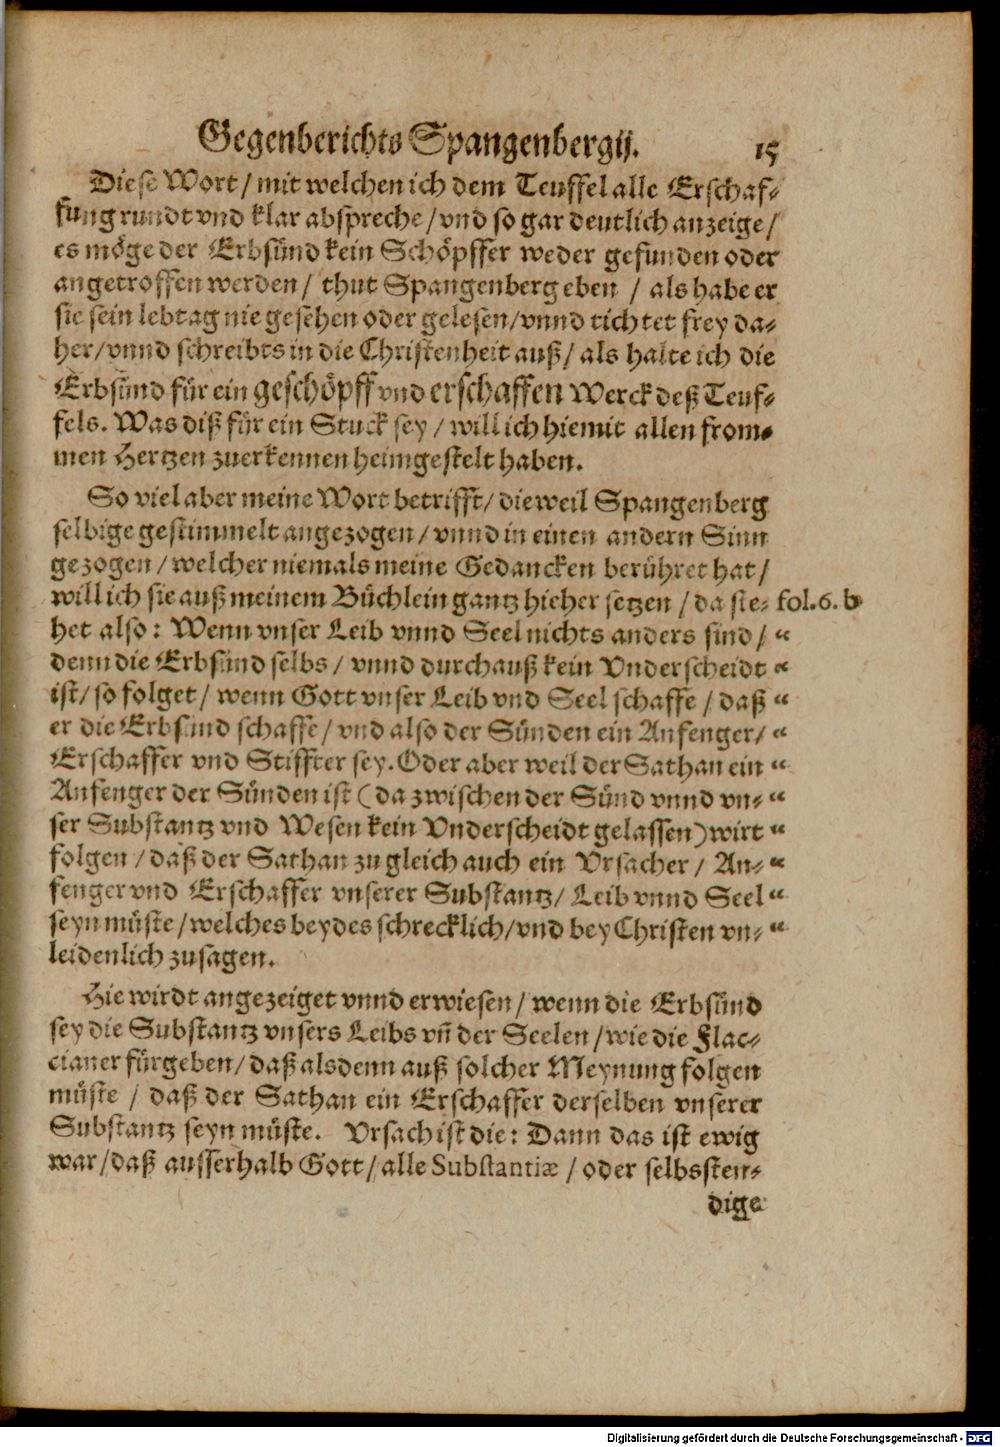 Gegenberichts Spangenbergij. 15
Diese Wort / mit welchen ich dem Teuffel alle Erschaf-
fung rundt vnd klar abspreche / vnd so gar deutlich anzeige /
es möge der Erbsünd kein Schöpffer weder gefunden oder
angetroffen werden / thut Spangenberg eben / als habe er
sie sein lebtag nie gesehen oder gelesen / vnnd tichtet frey da-
her / vnnd schreibts in die Christenheit auß / als halte ich die
Erbsünd für ein geschöpff vnd erschaffen Werck deß Teuf-
fels. Was diß für ein Stuck sey / will ich hiemit allen from-
men Hertzen zuerkennen heimgestelt haben.
So viel aber meine Wort betrifft / dieweil Spangenberg
selbige gestimmelt angezogen / vnnd in einen andern Sinn
gezogen / welcher niemals meine Gedancken berühret hat /
will ich sie auß meinem Büchlein gantz hieher setzen / da ste- fol. 6. b
het also: Wenn vnser Leib vnnd Seel nichts anders sind / “
denn die Erbsünd selbs / vnnd durchauß kein Vnderscheidt “
ist / so folget / wenn Gott vnser Leib vnd Seel schaffe / daß “
er die Erbsünd schaffe / vnd also der Sünden ein Anfenger / “
Erschaffer vnd Stiffter sey. Oder aber weil der Sathan ein “
Anfenger der Sünden ist (da zwischen der Sünd vnnd vn- “
ser Substantz vnd Wesen kein Vnderscheidt gelassen) wirt “
folgen / daß der Sathan zu gleich auch ein Vrsacher / An- “
fenger vnd Erschaffer vnserer Substantz / Leib vnnd Seel “
seyn müste / welches beydes schrecklich / vnd bey Christen vn- “
leidenlich zusagen.
Hie wirdt angezeiget vnnd erwiesen / wenn die Erbsünd
sey die Substantz vnsers Leibs vñ der Seelen / wie die Flac-
cianer fürgeben / daß alsdenn auß solcher Meynung folgen
müste / daß der Sathan ein Erschaffer derselben vnserer
Substantz seyn müste. Vrsach ist die: Dann das ist ewig
war / daß ausserhalb Gott / alle Substantiæ / oder selbssten-
dige
Digitalisierung gefördert durch die Deutsche Forschungsgemeinschaft - DFG